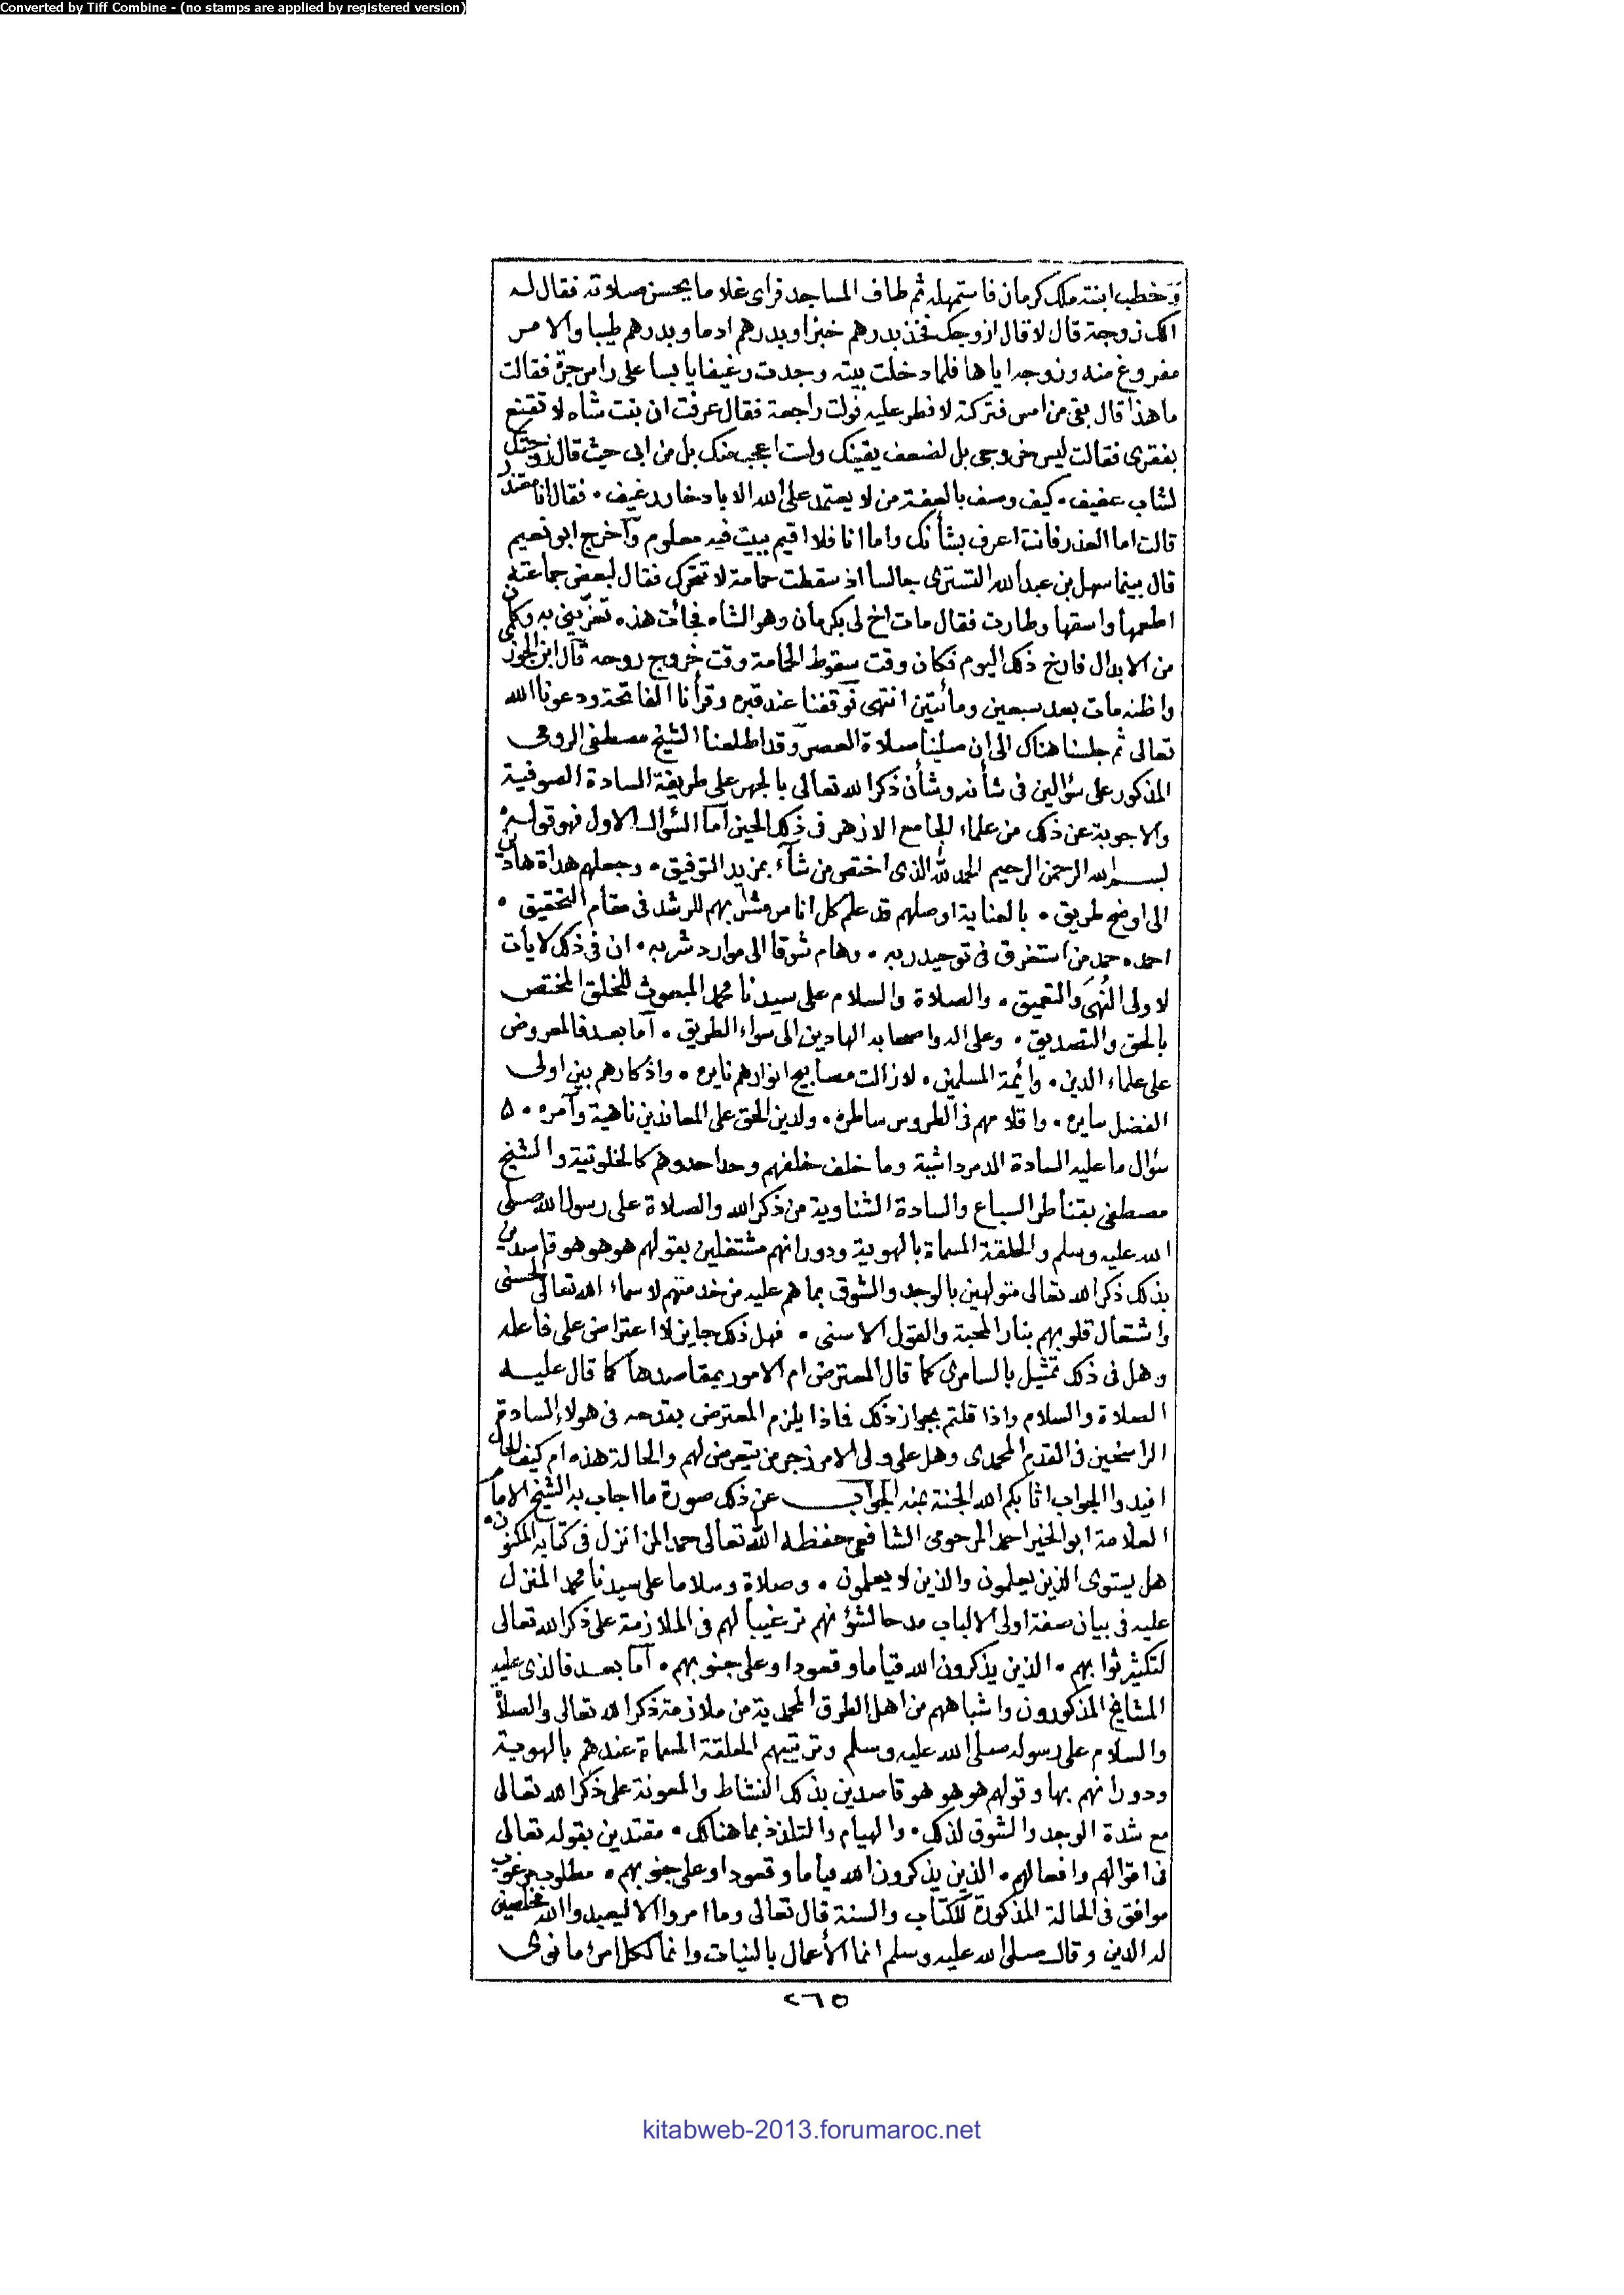 Converted by Tiff Combine - (no stamps are applied by registered version)
وخطب ابنته ملك كرمان فاستمهله ثم طاف المساجد فراى غلاما يحسن صلاته فقال له
الك زوجة قال لا قال ازوجك فخذ بدرهم خبزا وبدرهم ادما وبدرهم طيبا والامر
مفروغ منه وزوجه اياها فلما دخلت بيته وجدت رغيفا يابسا على راس جرة فقالت
ما هذا قال بقى من امس فتركته لافطر عليه فولت راجعة فقال عرفت ان بنت شاه لا تقنع
بفقرى فقالت ليس خروجى بل لضعف يقينك ولست اعجب منك بل من ابى حيث قال زوجتك
لشاب عفيف . كيف وصف بالعفة من لا يعتمد على الله الا بادخار رغيف . فقال انا معتذر
قالت اما العذر فانت اعرف بشأنك واما انا فلا اقيم ببيت فيه معلوم وآخرج ابو نعيم
قال بينما سهل بن عبدالله التسترى جالسا اذ سقطت حمامة لا تتحرك فقال لبعض جماعته
اطعمها واسقها وطارت فقال مات اخ لى بكرمان وهو الشاه فجائت هذه تعزينى به وكان
من الابدال فارخ ذلك اليوم فكان وقت سقوط الحمامة وقت خروج روحه قال ابن الجوزى
واظنه مات بعد سبعين ومأتين انتهى توقفنا عند قبره وقرأنا الفاتحة ودعونا الله
تعالى ثم جلسنا هناك الى ان صلينا صلاة العصر وقد اطلعنا الشيخ مصطفى الرومى
المذكور على سؤالين فى شأنه وشأن ذكر الله تعالى بالجهر على طريقة السادة الصوفية
والاجوبة عن ذلك من علماء الجامع الازهر فى ذلك الحين آما السؤال الاول فهو قوله
بسم الله الرحمن الرحيم الحمد لله الذى اختص من شآء بمزيد التوفيق . وجعلهم هداة هادين
الى اوضح طريق . بالعناية اوصلهم قد علم كل اناس مشربهم للرشد فى مقام التحقيق .
احمده حمد من استغرق فى توحيد ربه . وهام شوقا الى موارد شربه . ان فى ذلك لايات
لاولى النهى والتعميق . والصلاة والسلام على سيدنا محمد المبعوث للخلق المختص
بالحق والتصديق . وعلى اله واصحابه الهادين الى سواء الطريق . آما بعد فالمعروض
على علماء الدين . وائمة المسلمين . لازالت مصابيح انوارهم نايره . واذكارهم بين اولى
الفضل سايره . واقلامهم فى الطروس ساطره . ولدين الحق على المعاندين ناهية وآمره . ه
سؤال ما عليه السادة الدمرداشية وما خلف خلفهم وحدا حدوهم كالخلوتية والشيخ
مصطفى بقناطر السباع والسادة الشناوية من ذكر الله والصلاة على رسول الله صلى
الله عليه وسلم والحلقة المسماة بالهوية ودورانهم مشتغلين بقولهم هو هو هو قاصدين
بذلك ذكر الله تعالى متولهين بالوجد والشوق بما هم عليه من خدمتهم لاسماء الله تعالى الحسنى
واشتعال قلوبهم بنار المحبة والقول الاسنى . فهل ذلك جايز لا اعتراض على فاعله
وهل فى ذلك تمثيل بالسامرى كما قال المعترض ام الامور بمقاصدها كما قال عليه
الصلاة والسلام واذا قلتم بجواز ذلك فماذا يلزم المعترض بقدحه فى هولاء السادة
الراسخين فى القدم المحمدى وهل على ولى الامر زجر من يتعرض لهم والحالة هذه ام كيف الحال
افيدوا الجواب اثابكم الله الجنة بمنه الجواب عن ذلك صورة ما اجاب به الشيخ الامام
العلامة ابو الخير احمد المرحومى الشافعى حفظه الله تعالى حمدا لمن انزل فى كتابه المكنون
هل يستوى الذين يعلمون والذين لا يعلمون . وصلاة وسلاما على سيدنا محمد المنزل
عليه فى بيان صفة اولى الالباب مدحا لشؤنهم ترغيبا لهم فى الملازمة على ذكر الله تعالى
لتكثير ثوابهم . الذين يذكرون الله قياما وقعودا وعلى جنوبهم . آما بعد فالذى عليه
المشايخ المذكورون واشباههم من اهل الطرق المحمدية من ملازمة ذكر الله تعالى والصلاة
والسلام على رسوله صلى الله عليه وسلم وترتيبهم الحلقة المسماة عندهم بالهوية
ودورانهم بها وقولهم هو هو هو قاصدين بذلك النشاط والمعونة على ذكر الله تعالى
مع شدة الوجد والشوق لذلك . والهيام والتلذذ بما هنالك . مقتدين بقوله تعالى
فى اقوالهم وافعالهم . الذين يذكرون الله قياما وقعودا وعلى جنوبهم . مطلوب مرغوب
موافق فى الحالة المذكورة للكتاب والسنة قال تعالى وما امروا الا ليعبدوا الله مخلصين
له الدين وقال صلى الله عليه وسلم انما الأعمال بالنيات وانما لكل امرئ ما نوى
٢٦٥
kitabweb-2013.forumaroc.net